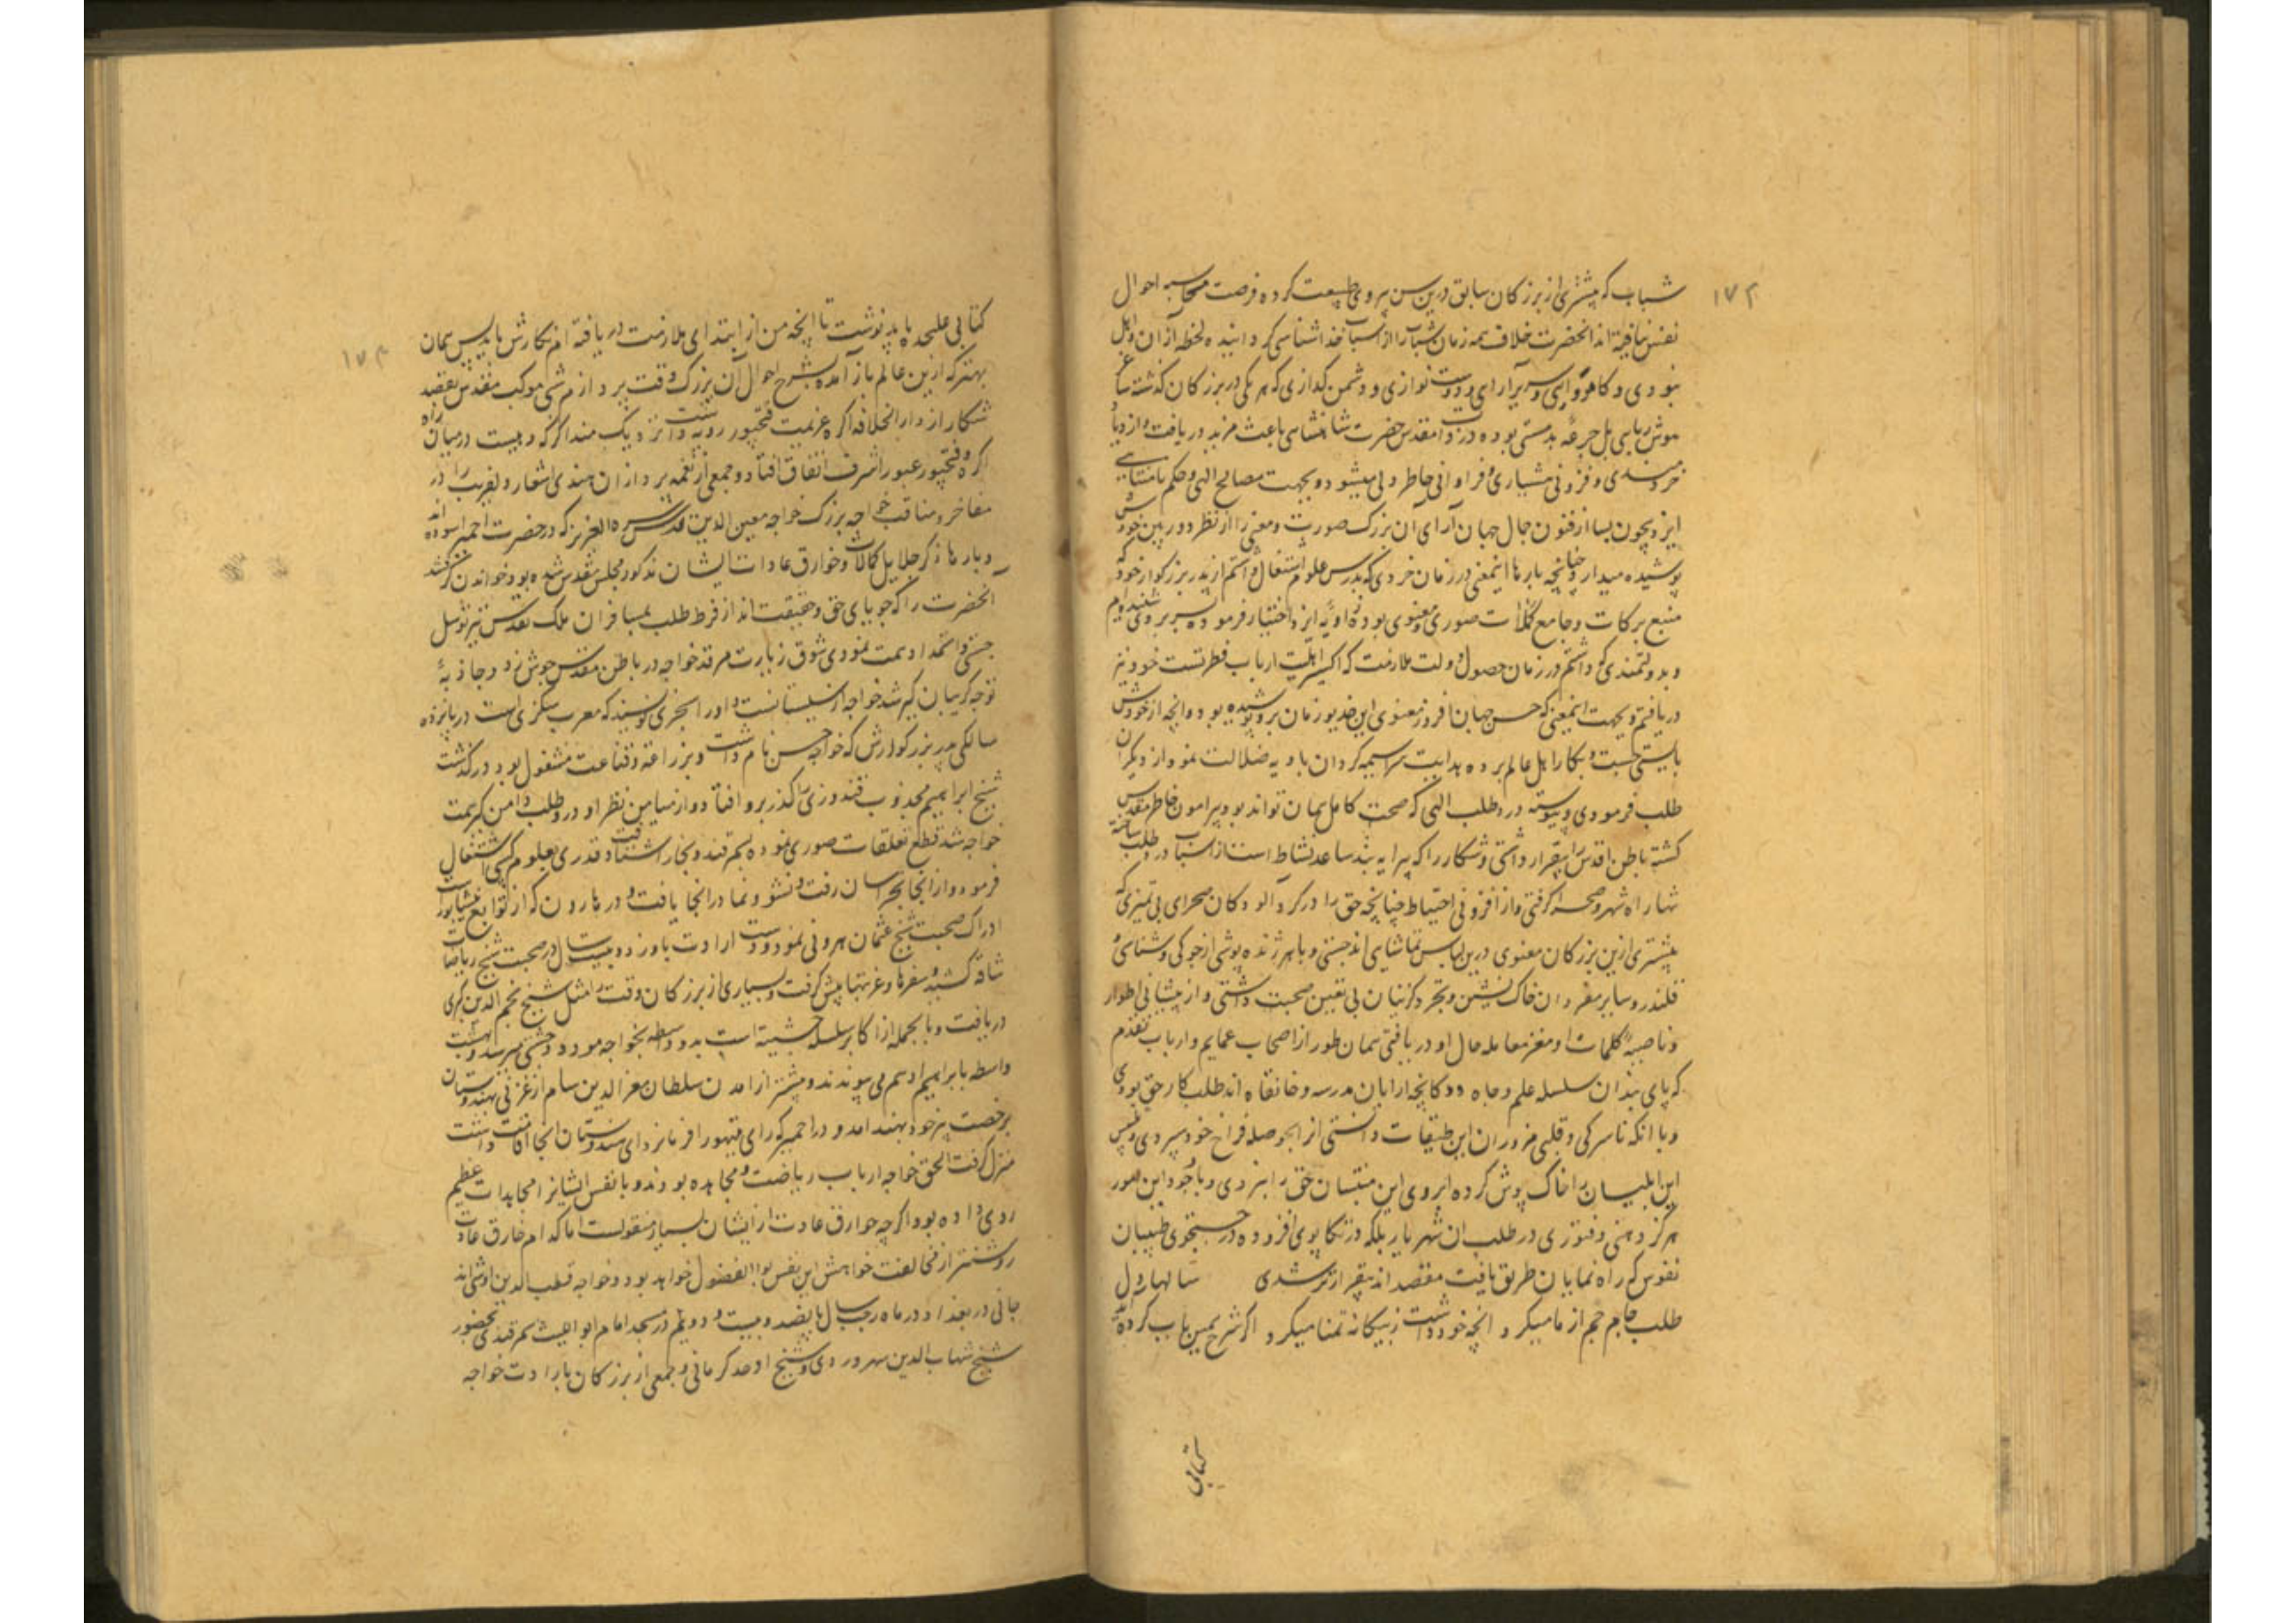 ۱۷۳
شباب که بیشتری از بزرگان سابق درین سن پیروی طبیعت کرده فرصت محاسبه احوال
نفس نیافته اند آنحضرت خلاف همه زمان شباب را از اسباب خداشناسی گردانیده لحظه از ان
نبودی و سریرآرای و دوست نوازی و دشمن گدازی که هر یکی در بزرگان گذشته
هوش ربای بل جرعه بدمستی بوده در ذات مقدس حضرت شاهنشاهی باعث مزید دریافت و
خردمندی و فزونی هشیاری و فراوانی خاطر ولی میشود و بجهت مصالح الهی و حکم نامتناهی
ایزد بیچون بسا از فنون جمال جهان آرای آن بزرگ صورت و معنی را از نظر دوربین خودش
پوشیده میدارد چنانچه بارها اینمعنی در زمان خردی که بدرس علوم اشتغال داشتم از پدر بزرگوار خود که
منبع برکات و جامع کمالات صوری و معنوی بوده زاویه انزوا اختیار فرموده بسر بردی شنیده ام
و بدولتمندی که داشتم در زمان حصول دولت ملازمت که اکسیر اهلیت ارباب فطرتست خود نیز
دریافتم و بجهت اینمعنی که حسن جهان افروز معنوی این خدیو زمان برو پوشیده بود و انچه از خودش
بایستی جست و بکار اهل عالم برده هدایت سراسیمه گردان بادیه ضلالت نمود از دیگران
طلب فرمودی و پیوسته درد طلب الهی که صحت کامل همان تواند بود پیرامون خاطر مقدس
گشته باطن اقدس را بیقرار داشتی و شکار را که پیرایه بند ساعد نشاط است از اسباب درد طلب ساخته
تنها راه شهر و صحرا گرفتی و از افزونی احتیاط چنانچه حق را در گردآلودگان صحرای بی تمیزی که
بیشتری ازین بزرگان معنوی درین لباس تماشای اند جستی و با هر ژنده پوشی از جوکی و سناسی و
قلندر و سایر مفردان خاک نشین و تجرد گزینان بی تعین صحبت داشتی و از پیشانی اطوار
و ناصیه کلمات او مغز معامله حال او دریافتی همان طور از اصحاب عمایم و ارباب تقدم
که پای بندان سلسله علم و جاه و دوکانچه آرایان مدرسه و خانقاه اند طلبکار حق بودی
و با انکه ناسرگی و قلبی مزوران این طبقات دانستی از انجا حوصله فراخ خود سپردی و نفس
این ابلیسان را خاک پوش کرده ابروی این منتسبان حق را نبردی و باوجود این امور
هرگز وهنی و فتوری در طلب ان شهریار بلکه در تکاپوی افزوده در جستجوی طبیبان
نفوس که راه نمایان طریق یافت مقصد اند بیقرارتر شدی سالها دل
طلب جام جم از ما میکرد انچه خود داشت ز بیگانه تمنا میکرد اگر شرح همین باب کرده آید
کتابی
۱۷۴
کتابی علیحده باید نوشت تا انچه من از ابتدای ملازمت دریافته ام نگارش یابد پس همان
بهتر که ازین عالم باز آمده بشرح احوال آن بزرگ وقت پردازم شبی موکب مقدس بقصد
شکار از دارالخلافه اگره عزیمت فتحپور رویه داشت نزدیک منداکر که دهیست درمیان راه
اگره و فتحپور عبور اشرف اتفاق افتاد و جمعی از نغمه پردازان هندی اشعار دلفریب را در
مفاخر و مناقب خواجه بزرگ خواجه معین الدین قدس سره العزیز که در حضرت اجمیر اسوده اند
و بارها ذکر جلایل کمالات و خوارق عادات ایشان مذکور مجلس مقدس شده بود خواندن گرفتند
آنحضرت را که جویای حق و حقیقت اند از فرط طلب بمسافران ملک تقدس نیز توسل
جستی و استمداد همت نمودی شوق زیارت مرقد خواجه در باطن مقدس جوش زد و جاذبهٔ
توجه گریبان گیر شد خواجه از سیستانست و او را سجزی نویسند که معرب سگزی است در پانزده
سالگی پدر بزرگوارش که خواجه حسن نام داشت و بزراعة و قناعت مشغول بود درگذشت
شیخ ابراهیم مجذوب قندوزی را گذر برو افتاد و از میامن نظر او درد طلب دامن گیر همت
خواجه شد قطع تعلقات صوری نموده بسمرقند و بخارا شتافت و قدری بعلوم کسبی اشتغال
فرمود و از انجا بخراسان رفت و نشو و نما در انجا یافت و در هارون که از توابع نیشاپور است
ادراک صحبت شیخ عثمان هرونی نمود و دست ارادت باو زد و بیست سال در صحبت شیخ ریاضات
شاقه کشید و سفرها و غربتها پیش گرفت و بسیاری از بزرگان وقت را مثل شیخ نجم الدین کبری
دریافت و بالجمله از اکابر سلسله چشتیه است بدو واسطه بخواجه مودود چشتی میرسد و بهشت
واسطه بابراهیم ادهم می پیوندند و بیشتر از امدن سلطان معزالدین سام از غزنی بهندوستان
برخصت پیر خود بهند امد و در اجمیر که رای پتهورا فرمانروای هندوستان انجا اقامت داشت
منزل گرفت الحق خواجه ارباب ریاضت و مجاهده بودند و با نفس ایشانرا مجاهدات عظیم
روی داده بود اگرچه خوارق عادت از ایشان بسیار منقولست اما کدام خارق عادت
روشنتر از مخالفت خواهش این نفس بوالفضول خواهد بود و خواجه قطب الدین اوشی اند
جانی در بغداد در ماه رجب سال پانصد و بیست و دویم در مسجد امام ابواللیث سمرقندی بحضور
شیخ شهاب الدین سهروردی و شیخ اوحد کرمانی و جمعی از بزرگان بارادت خواجه